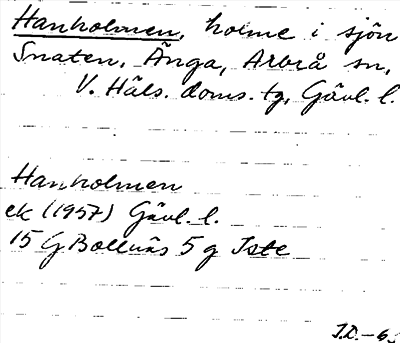 Hanholmen, holme i sjön
Snaten, Änga, Arbrå sn,
V. Häls. doms. tg, Gävl. l.
Hanholmen
ek (1957) Gävl. l.
15 G Bollnäs 5 g Iste
J.D. -6